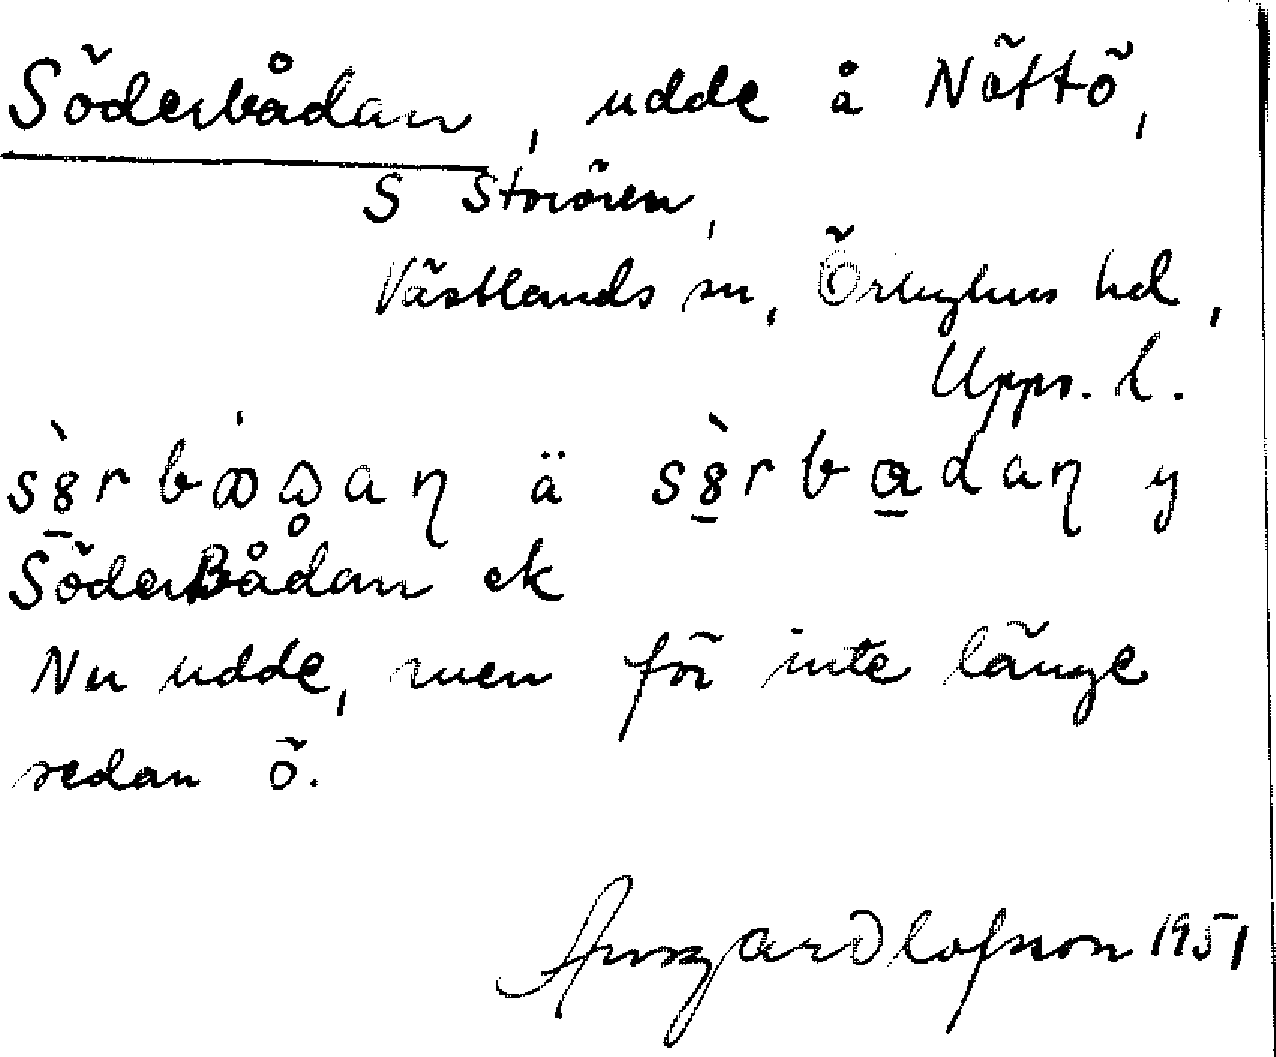 Söderbådan, udde å Nöttö,
S Storören,
Västlands sn, Örbyhus hd,
Upps. l.
ä y
SöderBådan ek
Nu udde, men för inte länge
sedan ö.
Ansgar Olofsson 1951